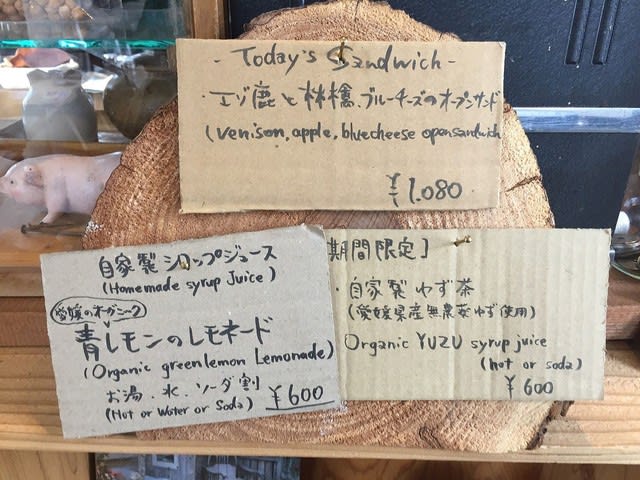 - Today's Sandwich -
・エゾ鹿と林檎、ブルーチーズのオープンサンド
(venison, apple, bluecheese opensandwich
¥1.080
自家製シロップジュース
(Homemade syrup Juice)
愛媛のオーガニック
青レモンのレモネード
(Organic green lemon Lemonade)
お湯.水.ソーダ割
(Hot or Water or Soda)
¥600
期間限定]
・自家製ゆず茶
(愛媛県産無農薬ゆず使用)
Organic YUZU syrup juice
(hot or soda)
¥600